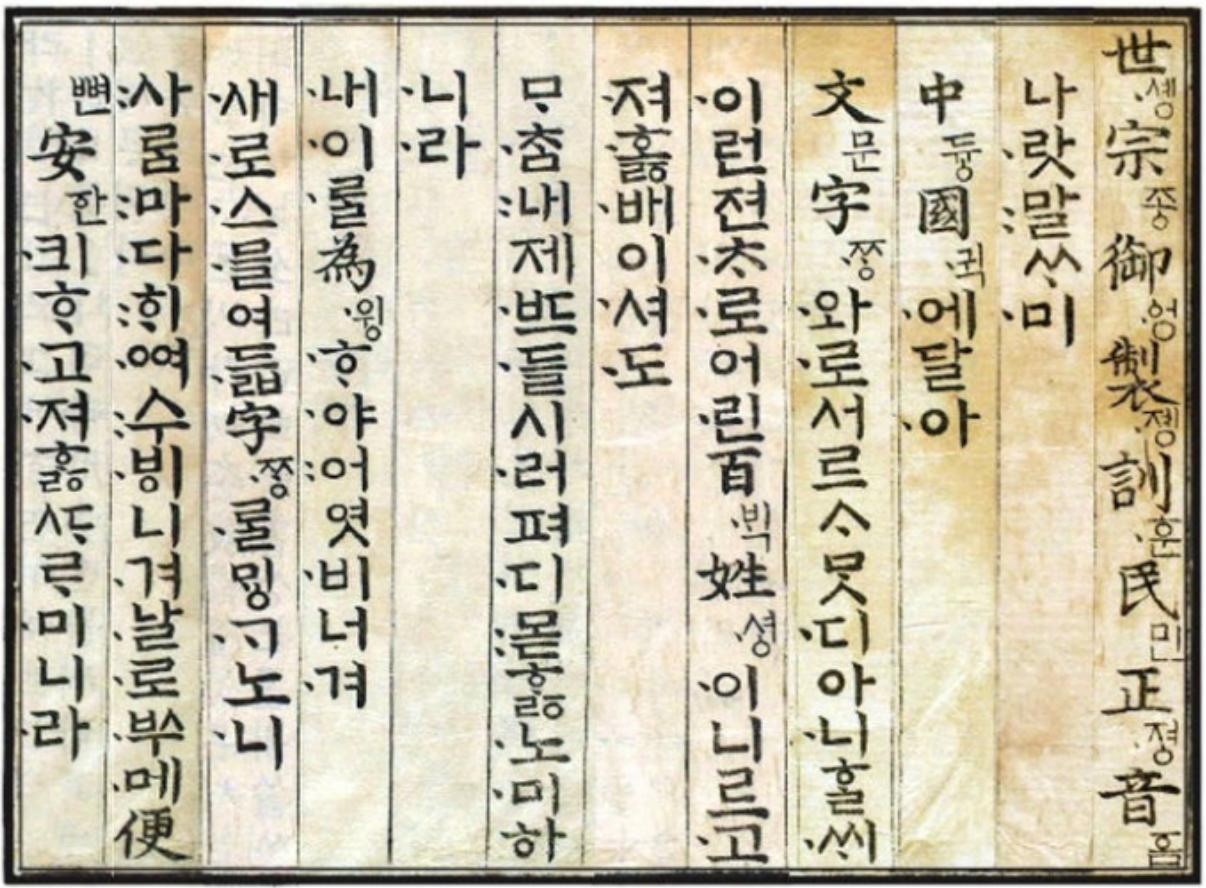 世솅宗종御엉製졩訓훈民민正졍音흠
나랏말ᄊᆞ미
中듕國귁에달아
文문字ᄍᆞᆼ와로서르ᄉᆞᄆᆞᆺ디아니ᄒᆞᆯᄊᆡ
이런젼ᄎᆞ로어린百ᄇᆡᆨ姓셩이니르고
져ᄒᆞᇙ배이셔도
ᄆᆞᄎᆞᆷ내제ᄠᅳ들시러펴디몯ᄒᆞᇙ노미하
니라
내이ᄅᆞᆯ為윙ᄒᆞ야어엿비너겨
새로스믈여듧字ᄍᆞᆼᄅᆞᆯᄆᆡᆼᄀᆞ노니
사ᄅᆞᆷ마다ᄒᆡᅇᅧ수ᄫᅵ니겨날로ᄡᅮ메便
뼌安한킈ᄒᆞ고져ᄒᆞᇙᄯᆞᄅᆞ미니라